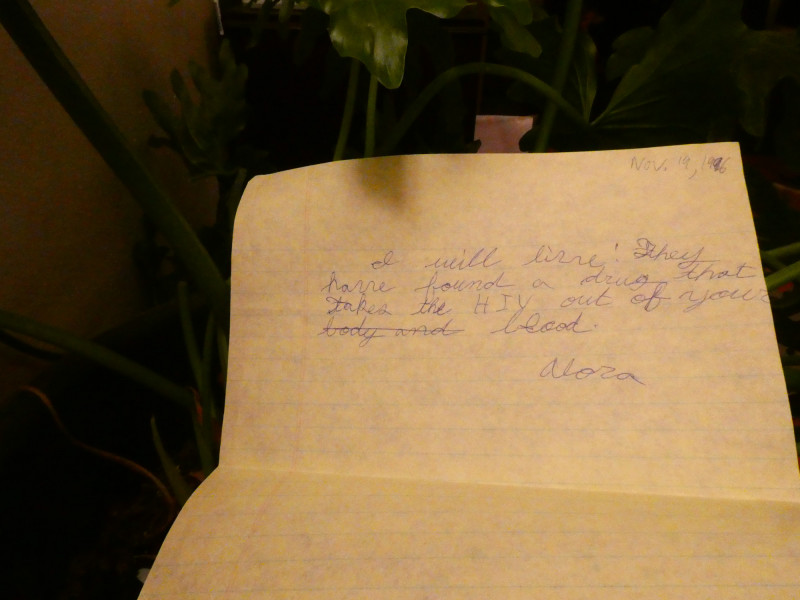 Nov. 19, 1996
I will live! They
have found a drug that
takes the HIV out of your
body and blood.
Nora